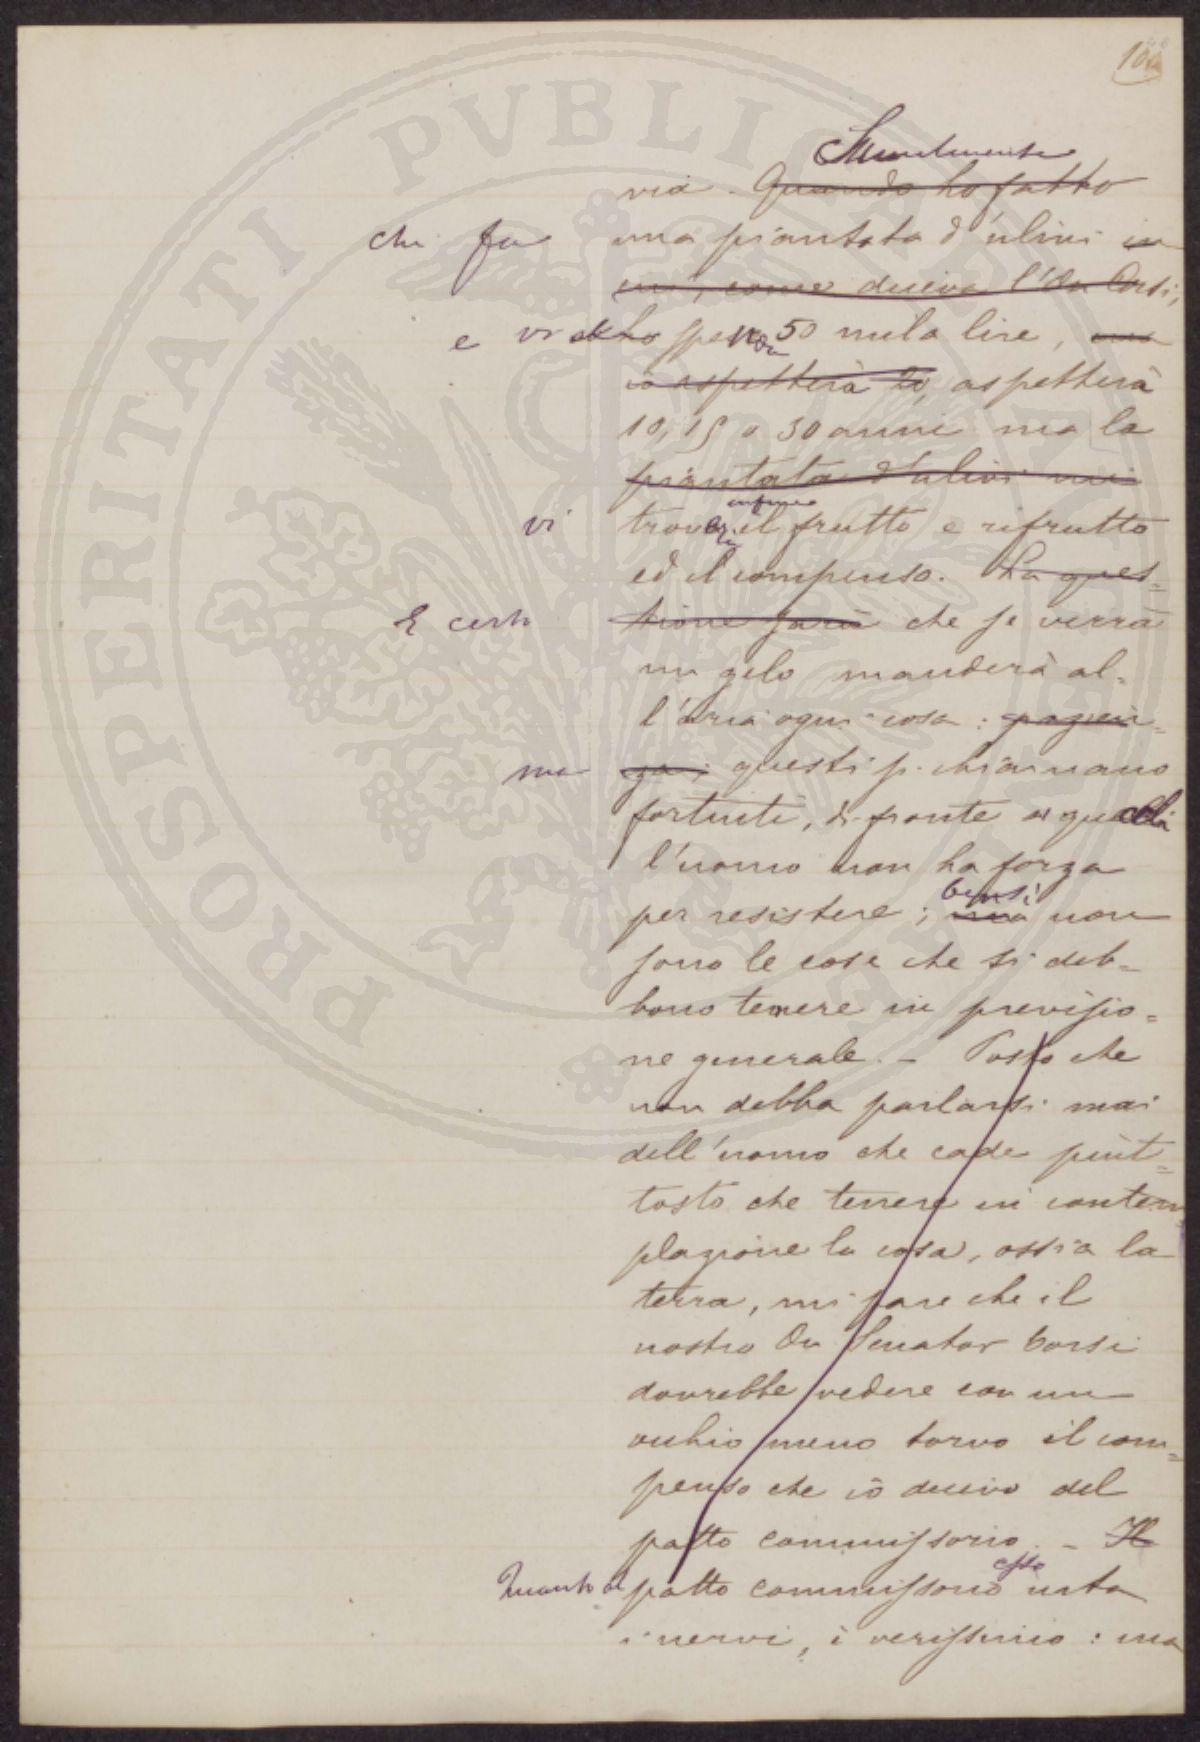 via. Quando ho fatto
che fa una piantata d'ulivi in
cui, come diceva l'On Corsi,
e vi ho spende 50 mila lire, ma
io aspetterà 20, aspetterà
10, 15 o 30 anni ma la
piantata d'ulivi mi
infine
vi troverà il frutto e rifrutto
ed il compenso. La ques=
È certo tione sarà che se verrà
un gelo manderà al=
l'aria ogni cosa: pazien=
ma za; questi si chiamano
fortuiti, di fronte ai quali
l'uomo non ha forza
bensì
per resistere; ma non
sono le cose che si deb=
bono tenere in previsio=
ne generale. – Posto che
non debba parlarsi mai
dell'uomo che cade piut=
tosto che tenere in contem
plazione la cosa, ossia la
terra, mi pare che il
nostro On Senator Corsi
dovrebbe vedere con un
occhio meno torvo il com=
penso che io dicevo del
patto commissorio. – Il
esso
Quanto al patto commissorio urta
i nervi, è verissimo: ma
PROSPERITATI PVBLICAE